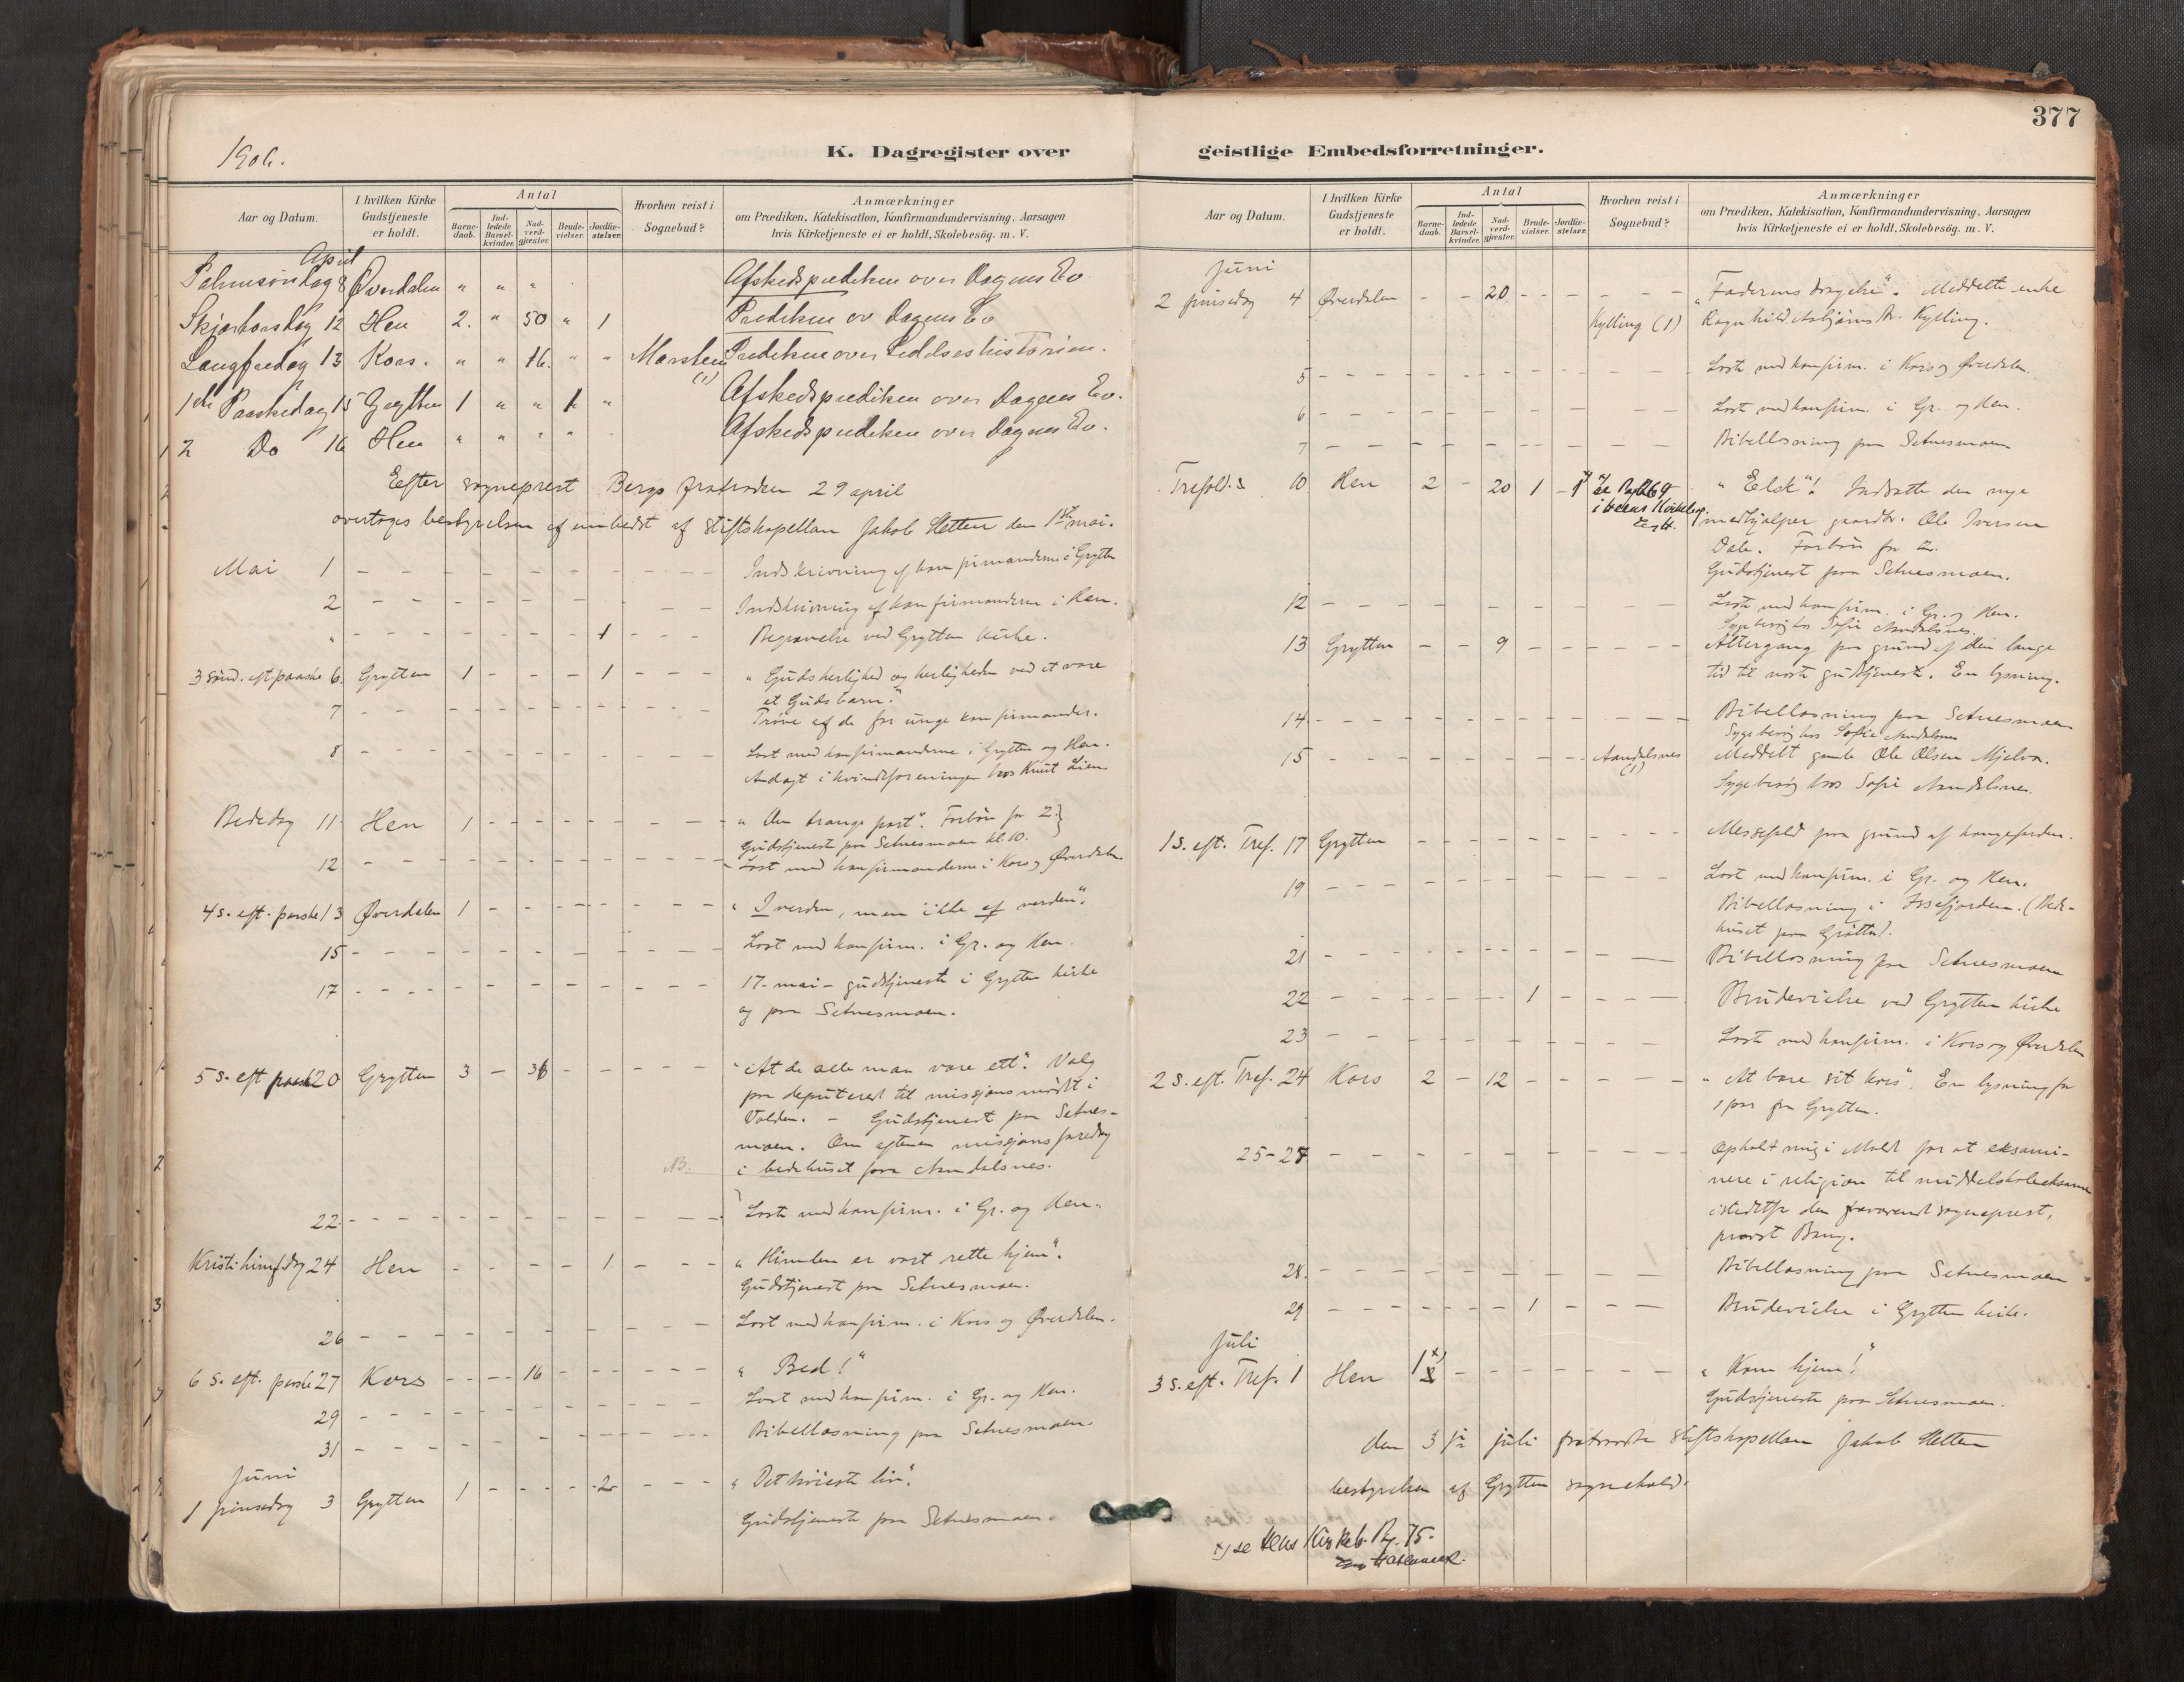 377
1906.
K. Dagregister over geistlige Embedsforretninger.
Aar og Datum.
I hvilken Kirke Gudstjeneste er holdt.
Antal
Barne-daab.
Ind-ledede Barsel-kvinder.
Nad-verd-gjæster.
Brude-vielser.
Jordfæ-stelser.
Hvorhen reist i Sognebud?
Anmærkninger
om Prædiken, Katekisation, Konfirmandundervisning, Aarsagen
hvis Kirketjeneste ei er holdt, Skolebesög. m. V.
April
Palmesöndag 8 Øverdalen " " " Afskedsprædiken over Dagens Ev
Skjærtorsdag 12 Hen 2. " 50 " 1 Prædiken ov Dagens Ev
Langfredag 13 Kors. " " 16. " " Marstein (1) Prædiken over Lidelseshistorien.
1ste Paaskedag 15 Grytten 1 " " 1 " Afskedsprædiken over Dagens Ev.
2 Do 16 Hen " " " " Afskedsprædiken over Dagens Ev.
Efter sogneprest Bergs fratræden 29 april
overtoges bestyrelsen af embedet af stiftskapellan Jakob Sletten den 1ste mai.
Mai 1 - - - - - - - Indskrivning af konfirmanderne i Grytten
2 - - - - - - - Indskrivning af konfirmanderne i Hen.
" - - - - - 1 - - - Begravelse ved Grytten kirke.
3 sönd. eft paaske 6. Grytten 1 - - - 1 - - - "Guds herlighed og herligheden ved at være
et Guds barn."
7 - - - - - - - Pröve af de for unge konfirmander.
8 - - - - - - - Læst med konfirmanderne i Grytten og Hen.
Andagt i kvindeforeningen hos Knut Lien
Bededag 11 Hen 1 - - - - - - - "Den trange port". Forbön for 2.
Gudstjeneste paa Setnesmoen kl. 10.
12 - - - - - - - Læst med konfirmanderne i Kors og Øverdalen
4 s. eft. paaske 13 Øverdalen 1 - - - - - - - "I verden, men ikke af verden."
15 - - - - - - - Læst med konfirm. i Gr. og Hen.
17 - - - - - - - 17-mai-gudstjeneste i Grytten kirke
og paa Setnesmoen.
5 s. eft paaske 20 Grytten 3 - 36 - - - - - "At de alle maa være ett". Valg
paa deputered til missjonsmödet i
Volden. - Gudstjenest paa Setnes-
moen. Om aftenen missjonsforedrag
NB. i bedehuset paa Aandalsnes.
22 - - - - - - - Læste med konfirm. i Gr. og Hen.
Kristi himf.dag 24 Hen - - - - 1 - - - "Himlen er vort rette hjem".
Gudstjenest paa Setnesmoen.
26 - - - - - - - Læst med konfirm. i Kors og Øverdalen.
6 s. eft. paaske 27 Kors - - 16 - - - - - "Bed!"
29 - - - - - - - Læst med konfirm. i Gr. og Hen.
31 - - - - - - - Bibellæsning paa Setnesmoen.
Juni
1 pinsedag 3 Grytten 1 - - - 2 - - - "Det höieste liv".
Gudstjeneste paa Setnesmoen.
Aar og Datum.
I hvilken Kirke Gudstjeneste er holdt.
Antal
Barne-daab.
Ind-ledede Barsel-kvinder.
Nad-verd-gjæster.
Brude-vielser.
Jordfæ-stelser.
Hvorhen reist i Sognebud?
Anmærkninger
om Prædiken, Katekisation, Konfirmandundervisning, Aarsagen
hvis Kirketjeneste ei er holdt, Skolebesög. m. V.
Juni
2 pinsedag 4 Øverdalen - - 20 - - - - - "Faderens dragelse". Meddelte enke
Kylling (1) Ragnhild Asbjörnsdtr. Kylling.
5 - - - - - - - Læste med konfirm. i Kors og Øverdalen.
6 - - - - - - - Læst med konfirm. i Gr. og Hen.
7 - - - - - - - Bibellæsning paa Setnesmoen
Trefold. s. 10 Hen 2 - 20 1 - 1 x) se Pag 69 i Hens Kirkebog. "Elsk"! Indsatte den nye
medhjælper gaardbr. Ole Iversen
Dale. Forbön for 2.
Gudstjenest paa Setnesmoen.
12 - - - - - - - Læste med konfirm. i Gr. og Hen.
Sygebesög hos Sofie Aandalsnes.
13 Grytten - - 9 - - - - - Altergang paa grund af den lange
tid til næste gudstjeneste. En lysning.
14 - - - - - - - Bibellæsning paa Setnesmoen
Sygebesög hos Sofie Aandalsnes
15 - - - - - - - Aandalsnes (1) Meddelt gamle Ole Olsen Mjelva.
Sygebesög hos Sofie Aandalsnes.
1 s. eft. Tref. 17 Grytten - - - - - - - Messefald paa grund af kongeferden.
19 - - - - - - - Læst med konfirm. i Gr. og Hen.
Bibellæsning i Isefjorden. (Bede-
huset paa Gröttu).
21 - - - - - - - Bibellæsning paa Setnesmoen
22 - - - - - 1 - - - Brudevielse ved Grytten kirke
23 - - - - - - - Læste med konfirm. i Kors og Øverdalen
2 s. eft. Tref. 24 Kors 2 - 12 - - - - - "At bære sit kors". En lysning for
1 par fra Grytten.
25-27 - - - - - - - Opholdt mig i Molde for at eksami-
nere i religion til middelskoleeksamen
istedetfor den fraværende sogneprest,
provst Bang.
28. - - - - - - - Bibellæsning paa Setnesmoen
29 - - - - - 1 - - - Brudevielse i Grytten kirke.
Juli
3 s. eft. Tref. 1 Hen 1 x) - - - - - - - "Kom hjem!"
Gudstjeneste paa Setnesmoen.
den 3die juli fratraadte stiftskapellan Jakob Sletten
bestyrelsen af Grytten sognekald.
x) se Hens Kirkeb. Pag. 75.